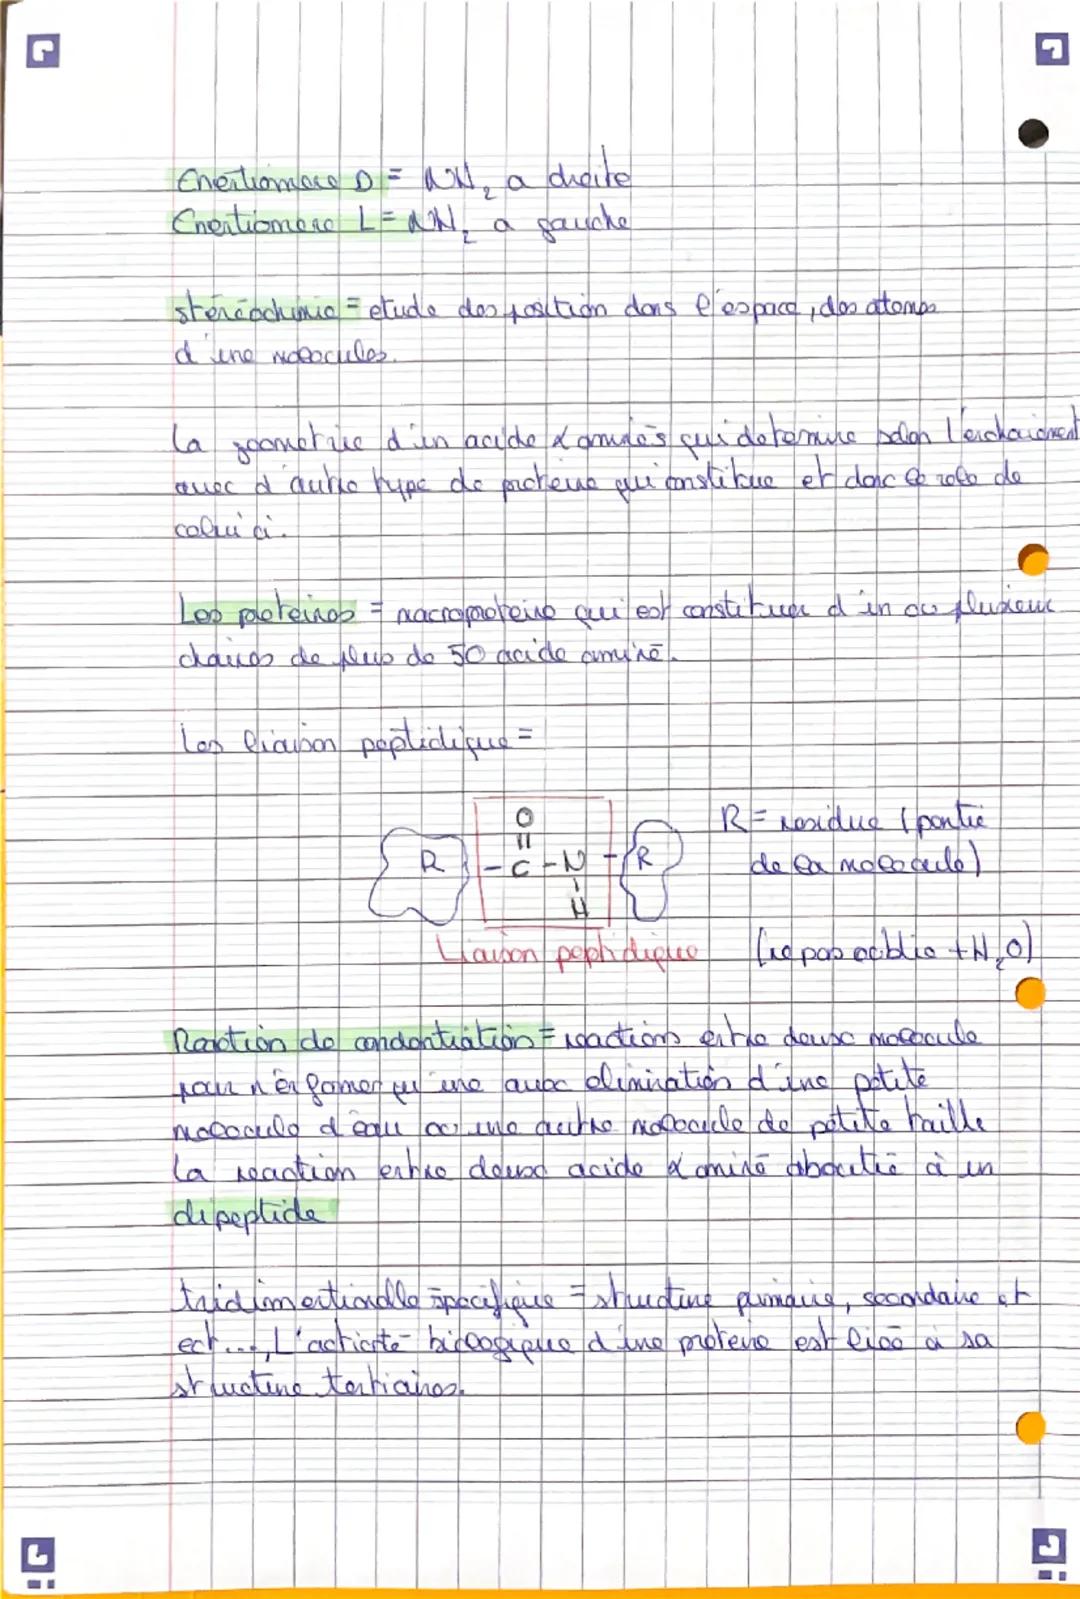 Enentiomere D = NH₂ a droite
Enentiomere L = NH₂ a gauche
stéréochimie = etude des position dans l'espace, des atomes
d'une molecules.
La geometrie d'un acide α aminés qui determine selon l'enchainement
avec d'autre type de proteine qui constitue et donc le role de
celui ci.
Les proteines = macroproteine qui est constituer d'un ou plusieur
chaines de plus de 50 acide aminé.
Les liaison peptidique =
O
||
R - C - N - R
|
H
R = residue (partie
de la molecule)
Liaison peptidique (ne pas oublie + H₂O)
Reaction de = reaction entre deux molecule
pour n'en former qu'une avec elimination d'une petite
molecule d'eau ou une autre molecule de petite taille
La reaction entre deux acide α aminé aboutie à un
dipeptide
specifique = structure primaire, secondaire et
ect..., L'activité biologique d'une proteine est liée à sa
structure tertiaires.